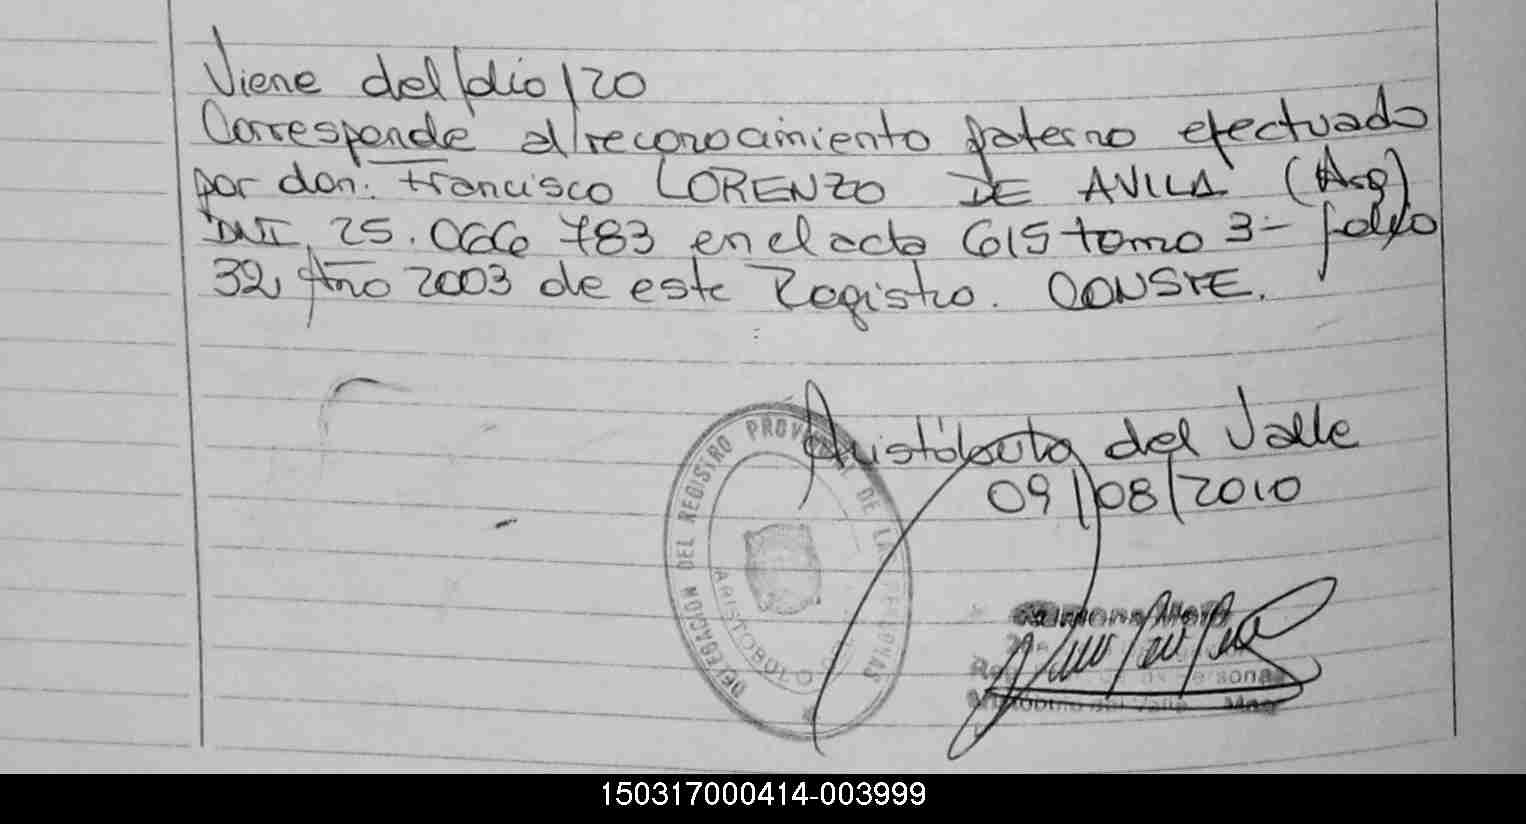 Viene del folio 120
Corresponde al reconocimiento paterno efectuado
por don: Francisco LORENZO DE AVILA (Arg)
DNI 25.066 783 en el acta 615 tomo 3- folio
32, Año 2003 de este Registro. CONSTE.
Aristóbulo del Valle
09/08/2010
DELEGACION DEL REGISTRO PROVINCIAL DE LAS PERSONAS
ARISTOBULO DEL
Personas
Aristóbulo del Valle
150317000414-003999